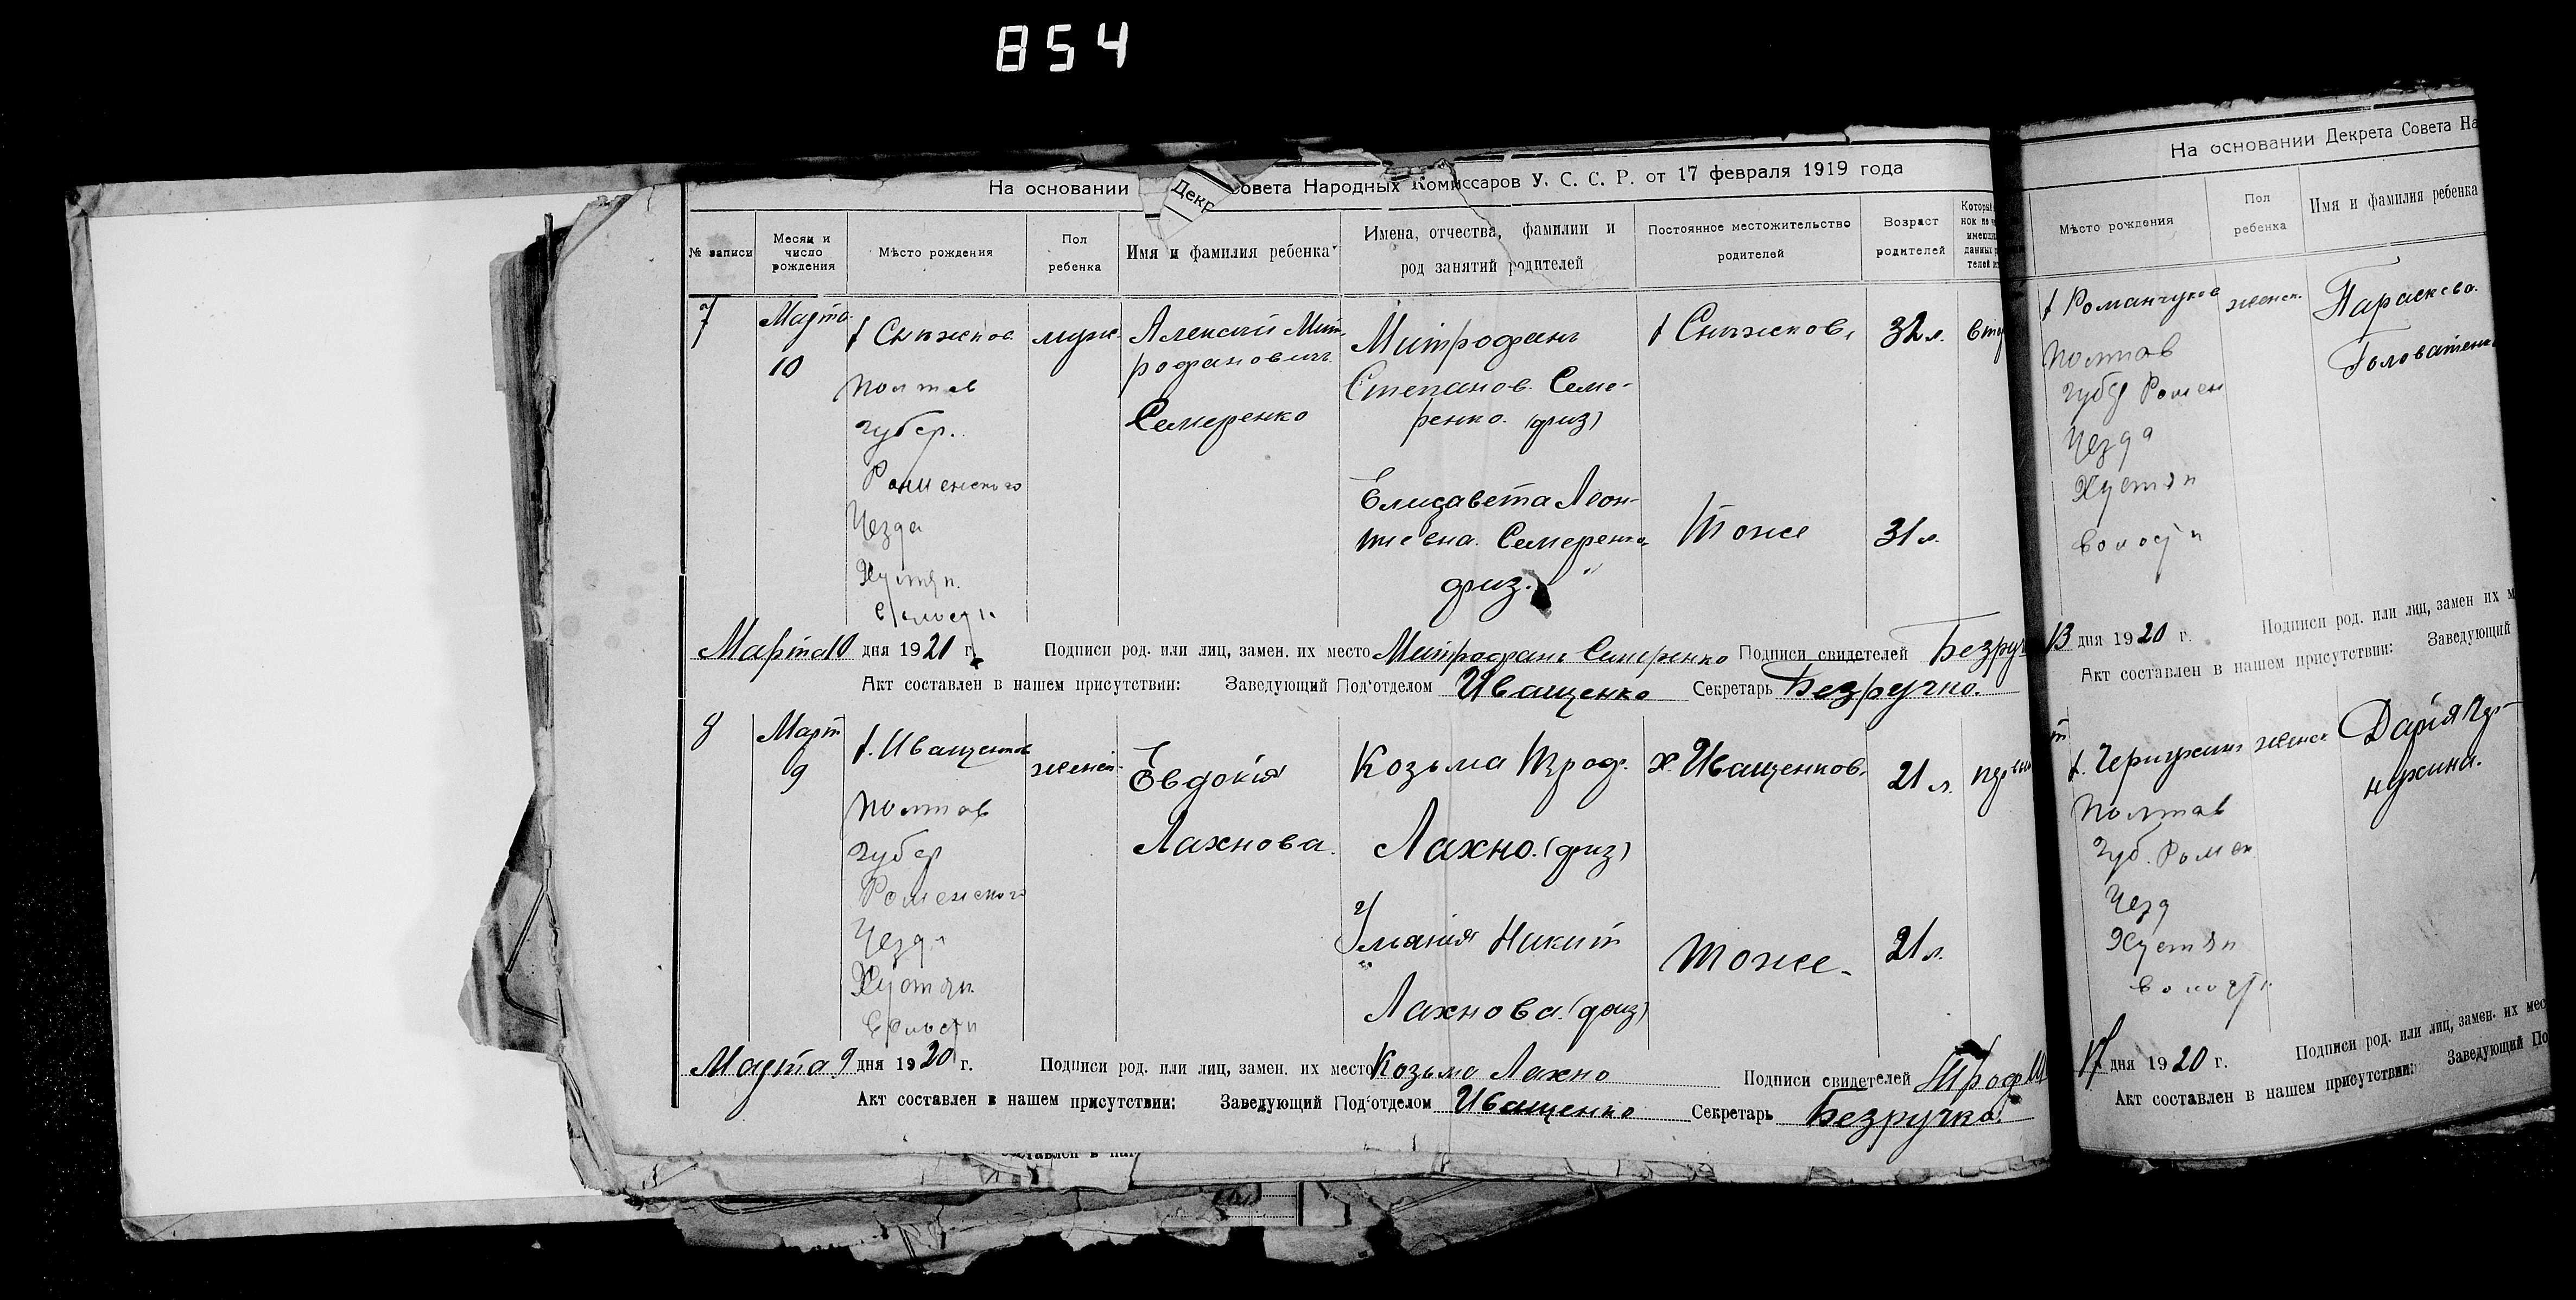 854
На основании Декр Совета Народных Комиссаров У. С. С. Р. от 17 февраля 1919 года
№ записи
Месяц и число рождения
Мѣсто рождения
Пол ребенка
Имя и фамилия ребенка
Имена, отчества, фамилии и род занятий родителей
Постоянное местожительство родителей
Возраст родителей
7
Марта
10
х Снѣжков
Полтав
губер.
Роменского
Уезда
Хустян.
Волости
муж.
Алексий Мит-
рофанович
Семеренко
Митрофан
Степанов. Семе-
ренко. (физ)
х Снѣжков,
32 л.
Елисавета Леон-
тиевна. Семеренко
физ.
Тоже
31 л.
Марта 10 дня 1921 г. Подписи род. или лиц, замен. их место Митрофан Семеренко Подписи свидетелей Безруч
Акт составлен в нашем присутствии: Заведующий Под'отделом Иващенко Секретарь Безручко.
8
Март
9
х. Иващенков
Полтав
губер
Роменского
Уезда
Хустян.
Волости
женск.
Евдокия
Лахнова.
Козьма Троф.
Лахно. (физ)
х. Иващенков.
21 л.
Никит
Лахнова. (физ)
Тоже.
21 л.
Марта 9 дня 1920 г. Подписи род. или лиц, замен. их место Козьма Лахно Подписи свидетелей Троф
Акт составлен в нашем присутствии: Заведующий Под'отделом Иващенко Секретарь Безручко.
На основании Декрета Совета На
Мѣсто рождения
Пол ребенка
Имя и фамилия ребенка
х Романчуков
Полтав
губер Ромен
Уезда
Хустян
Волости
женск.
Параскева.
Головатенк
13 дня 1920 г. Подписи род. или лиц, замен их м
Акт составлен в нашем присутствии: Заведующий
Полтав
Губ. Ромен
Уезд
Хустян
волости
женск
Дария
17 дня 1920 г. Подписи род. или лиц, замен. их мес
Акт составлен в нашем присутствии: Заведующий По